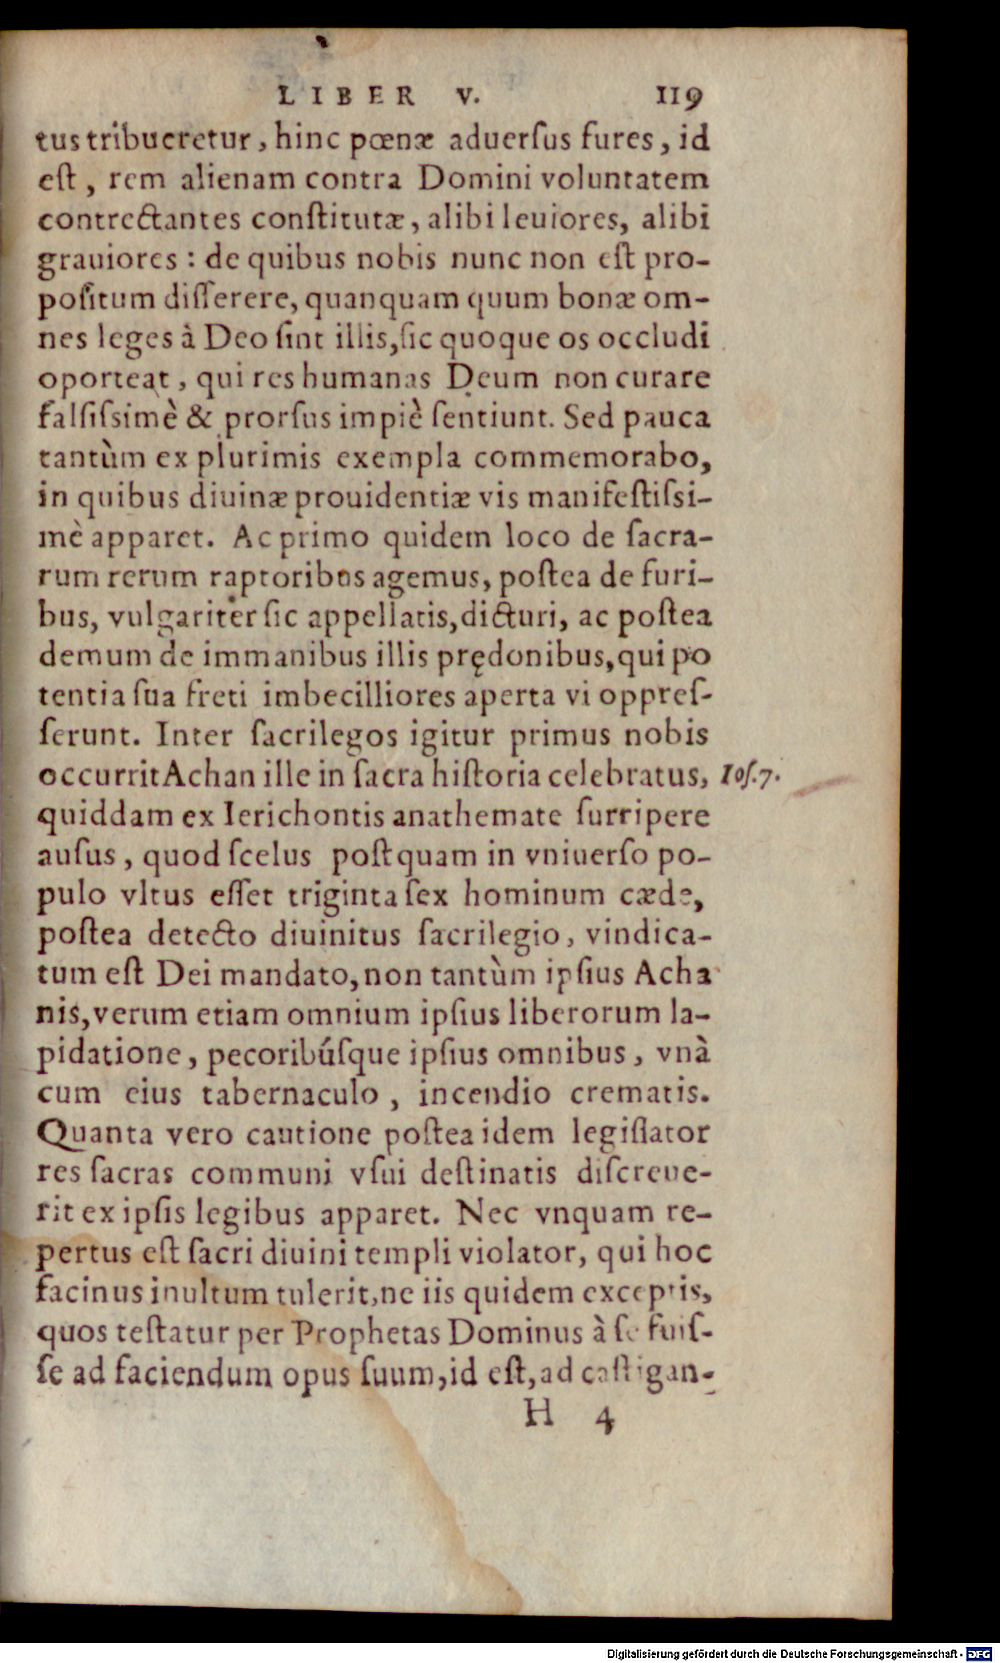 LIBER V. 119
tus tribueretur, hinc pœnæ aduerſus fures, id
eſt, rem alienam contra Domini voluntatem
contrectantes conſtitutæ, alibi leuiores, alibi
grauiores: de quibus nobis nunc non eſt pro-
poſitum diſſerere, quanquam quum bonæ om-
nes leges à Deo ſint illis, ſic quoque os occludi
oporteat, qui res humanas Deum non curare
falſiſsimè & prorſus impiè ſentiunt. Sed pauca
tantùm ex plurimis exempla commemorabo,
in quibus diuinæ prouidentiæ vis manifeſtiſsi-
mè apparet. Ac primo quidem loco de ſacra-
rum rerum raptoribus agemus, poſtea de furi-
bus, vulgariter ſic appellatis, dicturi, ac poſtea
demum de immanibus illis prędonibus, qui po
tentia ſua freti imbecilliores aperta vi oppreſ-
ſerunt. Inter ſacrilegos igitur primus nobis
occurrit Achan ille in ſacra hiſtoria celebratus, Ioſ.7.
quiddam ex Ierichontis anathemate ſurripere
auſus, quod ſcelus poſtquam in vniuerſo po-
pulo vltus eſſet triginta ſex hominum cæde,
poſtea detecto diuinitus ſacrilegio, vindica-
tum eſt Dei mandato, non tantùm ipſius Acha
nis, verum etiam omnium ipſius liberorum la-
pidatione, pecoribúſque ipſius omnibus, vnà
cum eius tabernaculo, incendio crematis.
Quanta vero cautione poſtea idem legiſlator
res ſacras communi vſui deſtinatis diſcreue-
rit ex ipſis legibus apparet. Nec vnquam re-
pertus eſt ſacri diuini templi violator, qui hoc
facinus inultum tulerit, ne iis quidem exceptis,
quos teſtatur per Prophetas Dominus à ſe fuiſ-
ſe ad faciendum opus ſuum, id eſt, ad caſtigan-
H 4
Digitalisierung gefördert durch die Deutsche Forschungsgemeinschaft - DFG